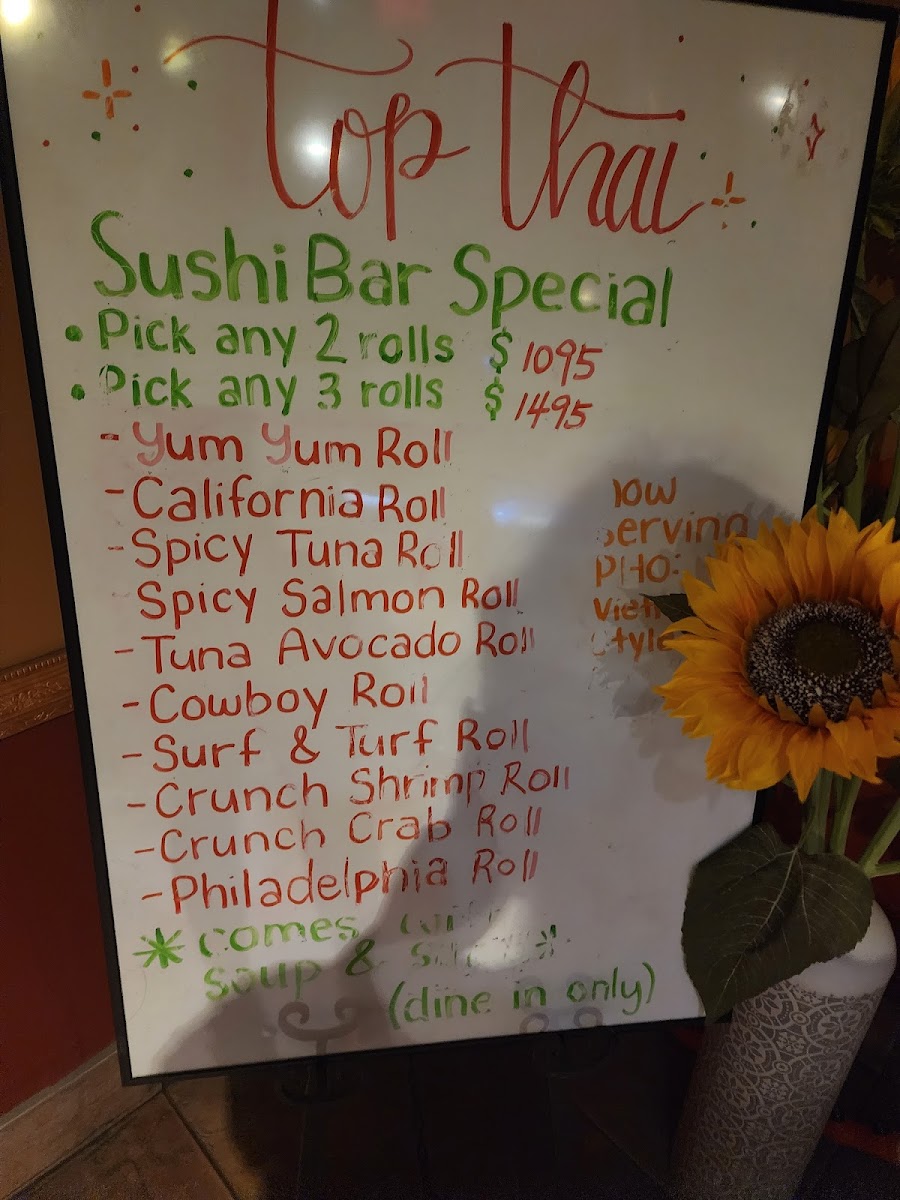 Top Thai
Sushi Bar Special
• Pick any 2 rolls $ 1095
• Pick any 3 rolls $ 1495
- Yum Yum Roll
- California Roll
- Spicy Tuna Roll
- Spicy Salmon Roll
- Tuna Avocado Roll
- Cowboy Roll
- Surf & Turf Roll
- Crunch Shrimp Roll
- Crunch Crab Roll
- Philadelphia Roll
* comes
soup &
(dine in only)
now
serving
PHO:
Viet
Style